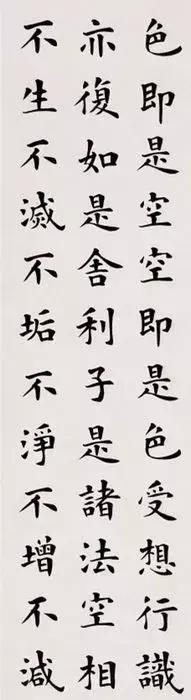 色即是空空即是色受想行識
亦復如是舍利子是諸法空相
不生不滅不垢不淨不增不減